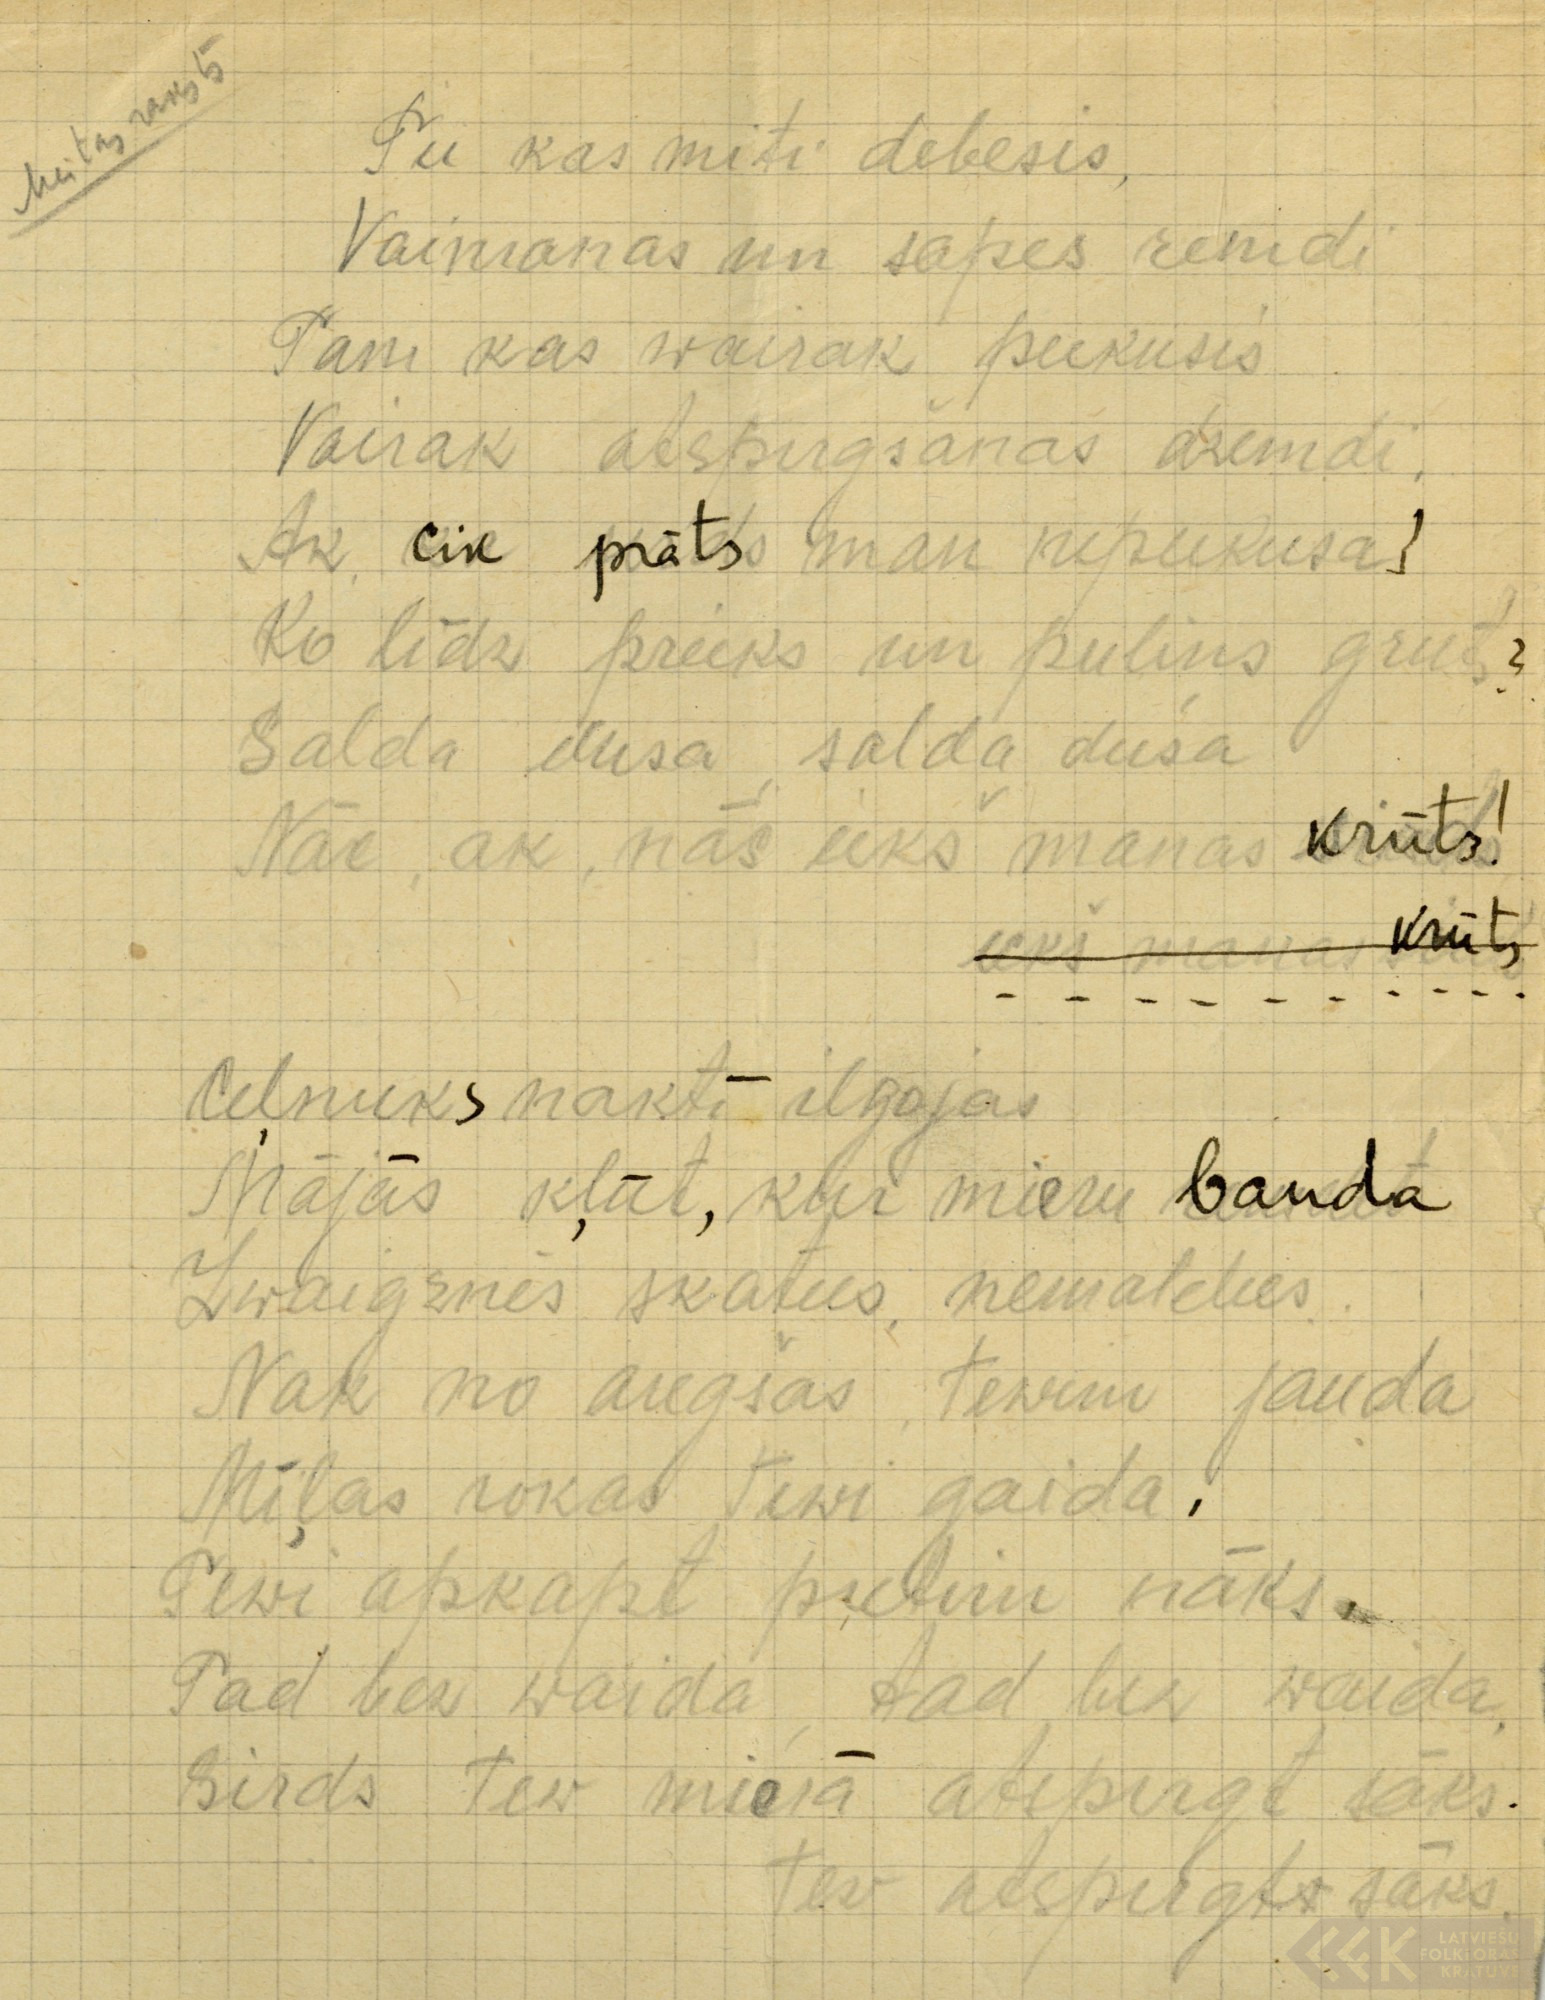 Meitas raksts
Tu kas miti debesis,
Vaimanas un sapes remdi
Tam kas wairak piekusis
Vairak atspirgšanas dzemdi.
Ak, cik prāts man nopiekusa!
Ko līdz prieks un puliņs gruts?
Salda dusa, salda dusa
Nāc, ak, nāc iekš manas krūts!
iekš manas krūts
Ceļnieks naktī ilgojas
Mājās kļūt, kur mieru bauda
Zwaigznēs skaties, nemaldies.
Nak no augšas, tewim jauda
Mīļas rokas Tewi gaida,
Tewi apkapt pretim nāks.
Tad bez waida, tad bez waida,
Sirds Tew mierā atspirgt sāks.
Tew atspirgt sāks.
LATVIEŠU
FOLKLORAS
KRĀTUVE